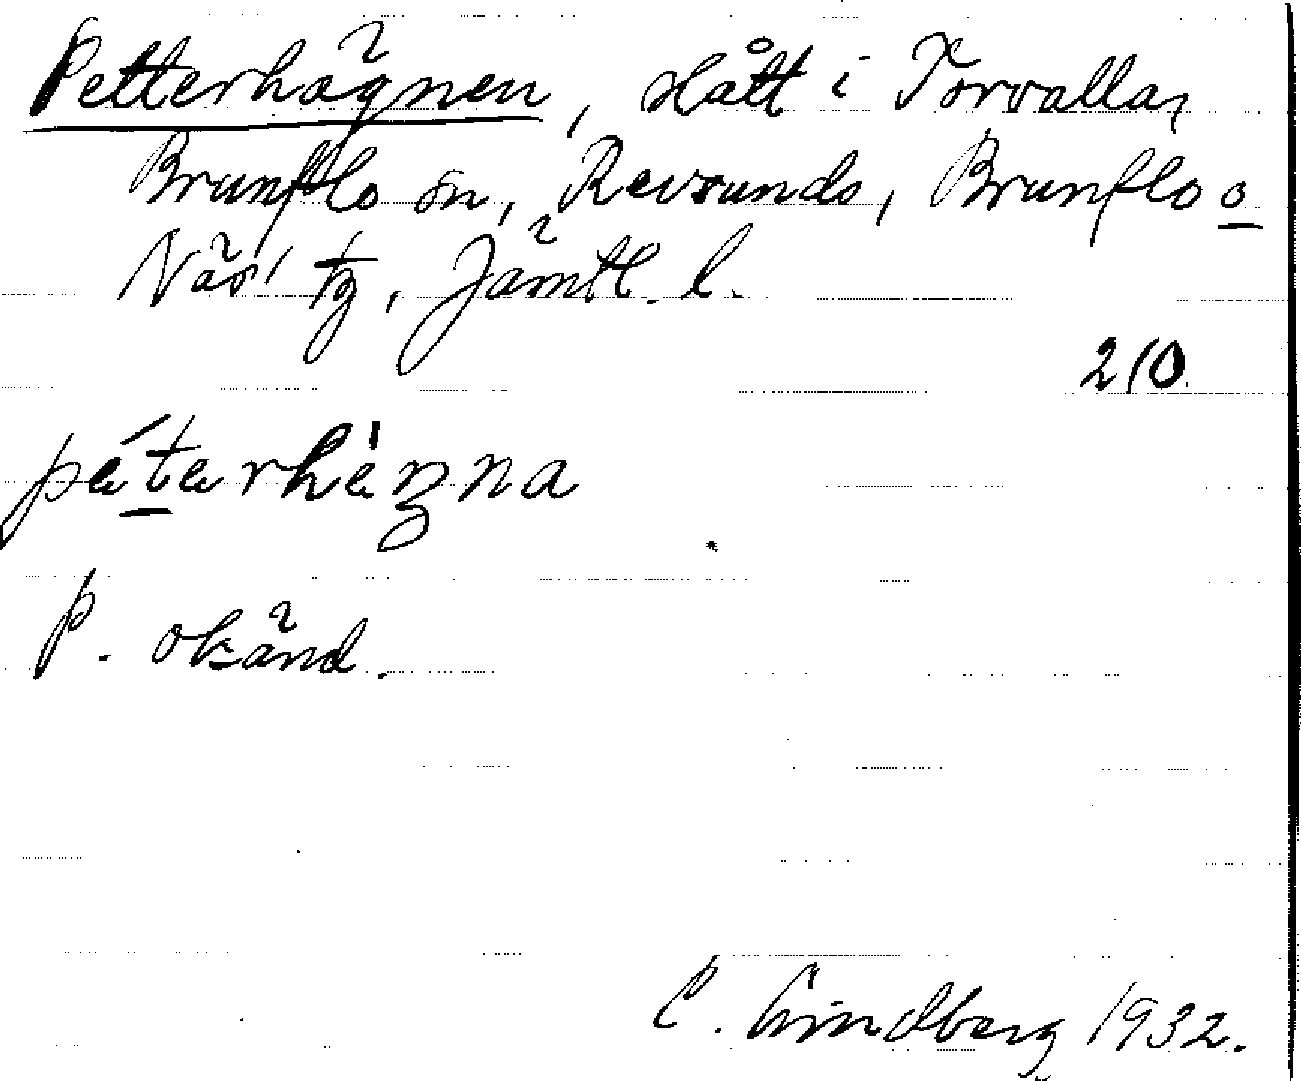 Petterhägnen, slått i Torvalla,
Brunflo sn, Revsunds, Brunflo o
Näs' tg, Jämtl. l.
210
pätarhäŋna
P. okänd.
C. Lindberg 1932.